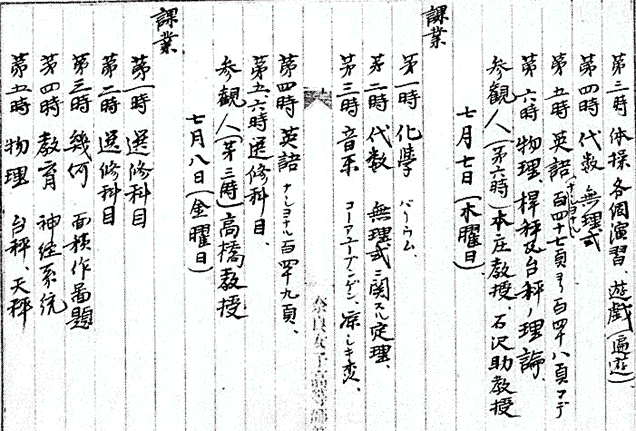 第三時 体操 各個演習、遊戯(遍遊)
第四時 代数 無理式
第五時 英語 ナショナル 百四十七頁ヨリ百四十八頁マデ
第六時 物理 桿秤及台秤ノ理論、
参観人(第六時)本庄教授、石沢助教授
七月七日(木曜日)
課業
第一時 化學 バリウム、
第二時 代数 無理式ニ関スル定理、
第三時 音楽 コーアユーブンゲン、涼シキ
第四時 英語 ナショナル百四十九頁、
第五六時 選修科目、
参観人(第三時)高橋教授
七月八日(金曜日)
課業
第一時 選修科目
第二時 選修科目
第三時 幾何 面積作図題
第四時 教育 神経系統
第五時 物理 台秤、天秤
奈良女子高等師